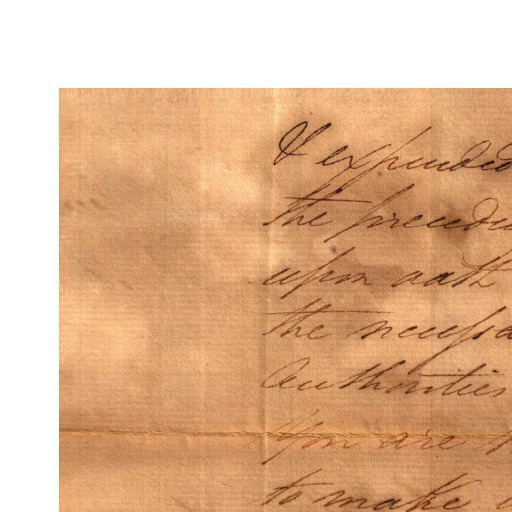 & expended
the precedi
upon oath
the necessa
Authorities
You are
to make